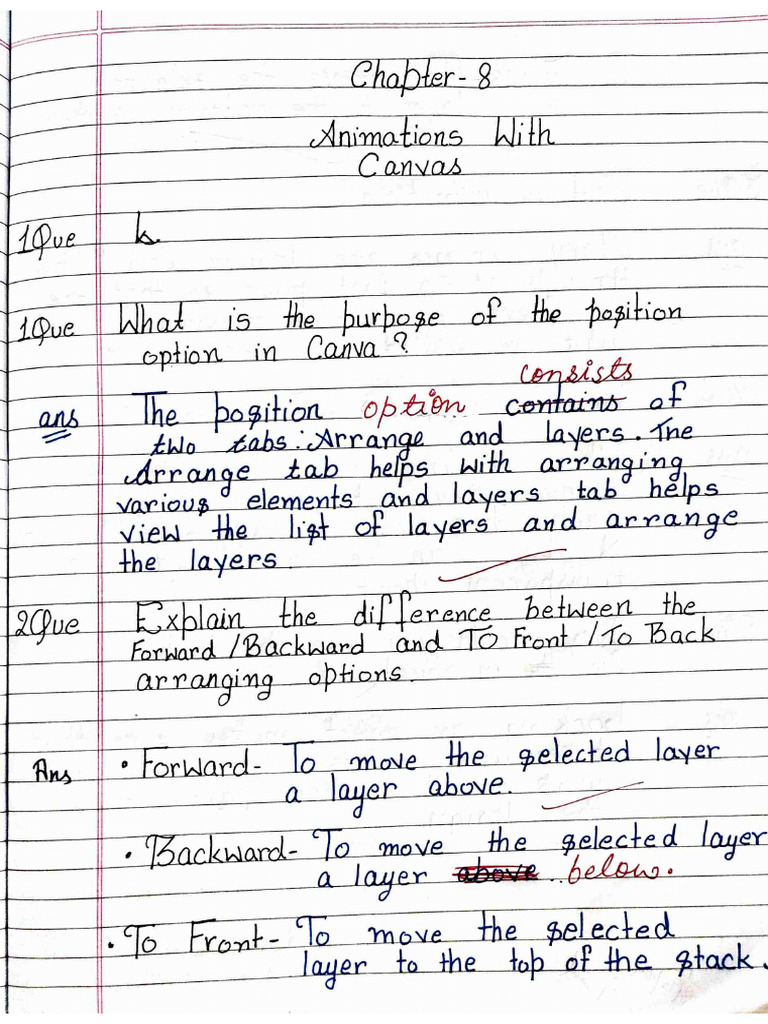 Chapter-8
Animations With
Canvas
1Que
1Que What is the purpose of the position
option in Canva?
consists
ans The position option contains of
two tabs: Arrange and layers. The
Arrange tab helps with arranging
various elements and layers tab helps
view the list of layers and arrange
the layers.
2Que Explain the difference between the
Forward/Backward and To Front/To Back
arranging options.
Ans • Forward- To move the selected layer
a layer above.
• Backward- To move the selected layer
a layer above below.
• To Front- To move the selected
layer to the top of the stack.